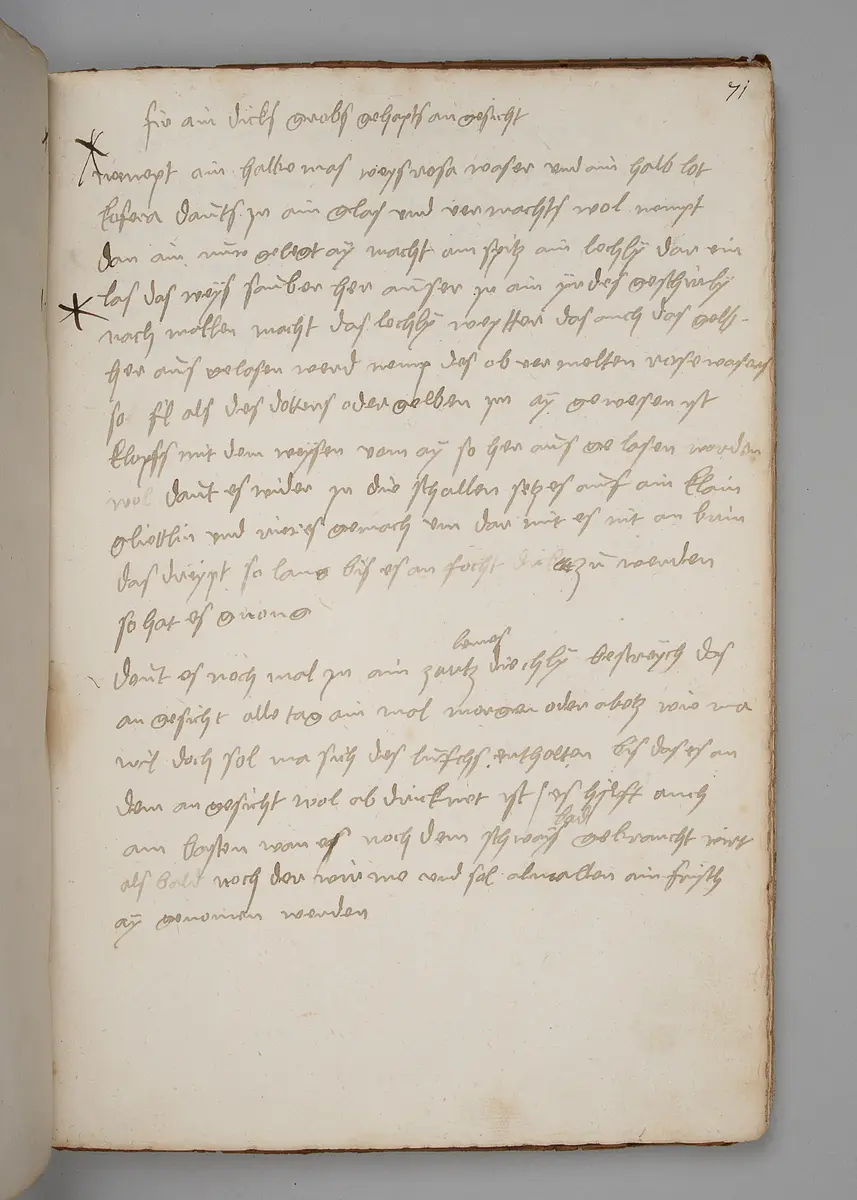 71
fir ain dicks grobs gehapts angesicht
nempt ain halbe mas weys rosa waser und ain halb lot
kofera dauts in ain glas und vermachts wol nempt
dan ain nuw gelegt ay macht am spitz ain lechly dar ein
las das weys sauber her auser in ain yrdes geschirly
nach mallen macht das lechly weytter das auch das gelb
her aus gelasen werd nemp des ob vermelten rosewasers
so fil als des dotters oder gelben im ay gewesen ist
klopffs mit dem weysen vom ay so her aus gelasen worden
wol daut es wider in die schallen setz es auf ain klain
gliettlin und rier es gemach um dar mit es nit an brin
das dreypt so lang bis es an focht dick zu werden
so hat es gnong
deut es noch mal in ain zartz diechly bestreych das
leines
angesicht alle tag ain mal morgen oder abetz wie ma
wil doch sol ma sich des luffchs enthalten bis das es an
dem angesicht wol ab dricknet ist / es hilfft auch
am basten wan es noch dem schways gebraucht wirt
bad
als bald noch der wirme und sol almallen ain frisch
ay genomen werden